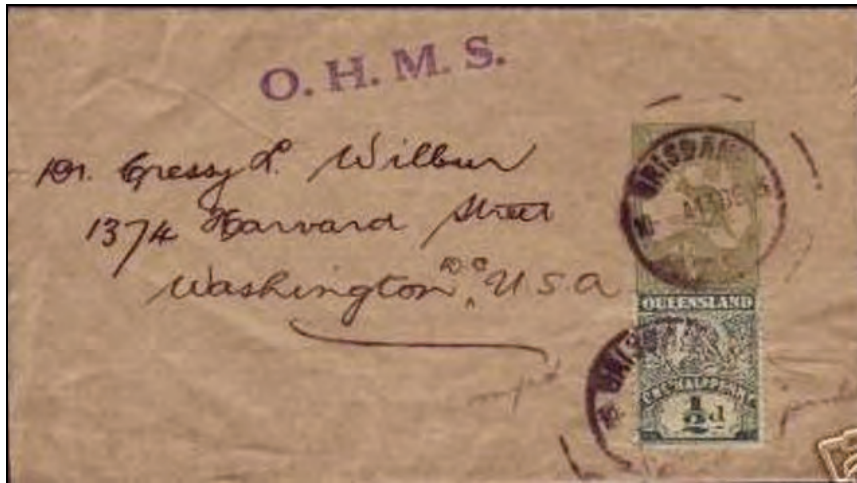 O. H. M. S.
Dr. Cressy L. Wilbur
1374 Harvard Street
Washington, D C U S A
BRISBANE
QUEENSLAND
BRISB
ONE HALFPENNY
½d